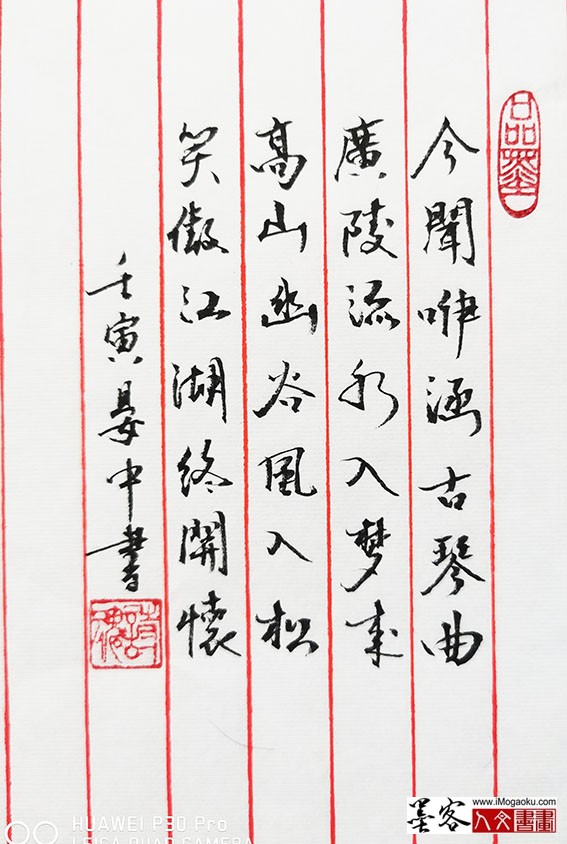 品墨
今聞咿涵古琴曲
廣陵流水入梦来
高山幽谷風入松
笑傲江湖終開懷
壬寅晏中書
HUAWEI P30 Pro
LEICA QUAD CAMERA
墨客
www.iMogaoku.com
人文書畫